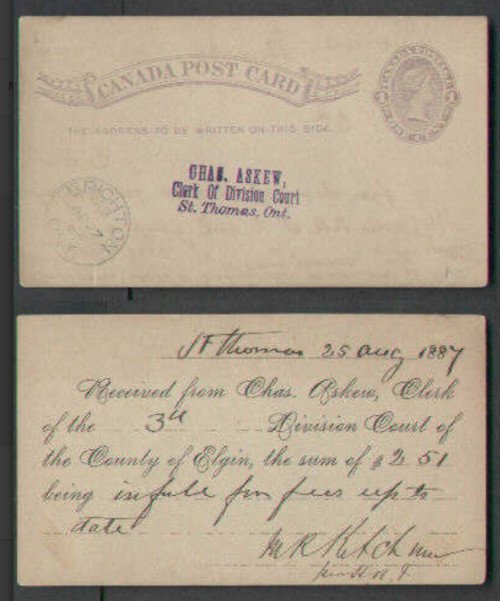 CANADA POST CARD
THE ADDRESS TO BE WRITTEN ON THIS SIDE.
CHAS. ASKEW,
Clerk Of Division Court
St. Thomas, Ont.
BRIGHTON
St Thomas 25 Aug 1887
Received from Chas. Askew, Clerk
of the 3rd Division Court of
the County of Elgin, the sum of $2 51
being in full for fees up to
date